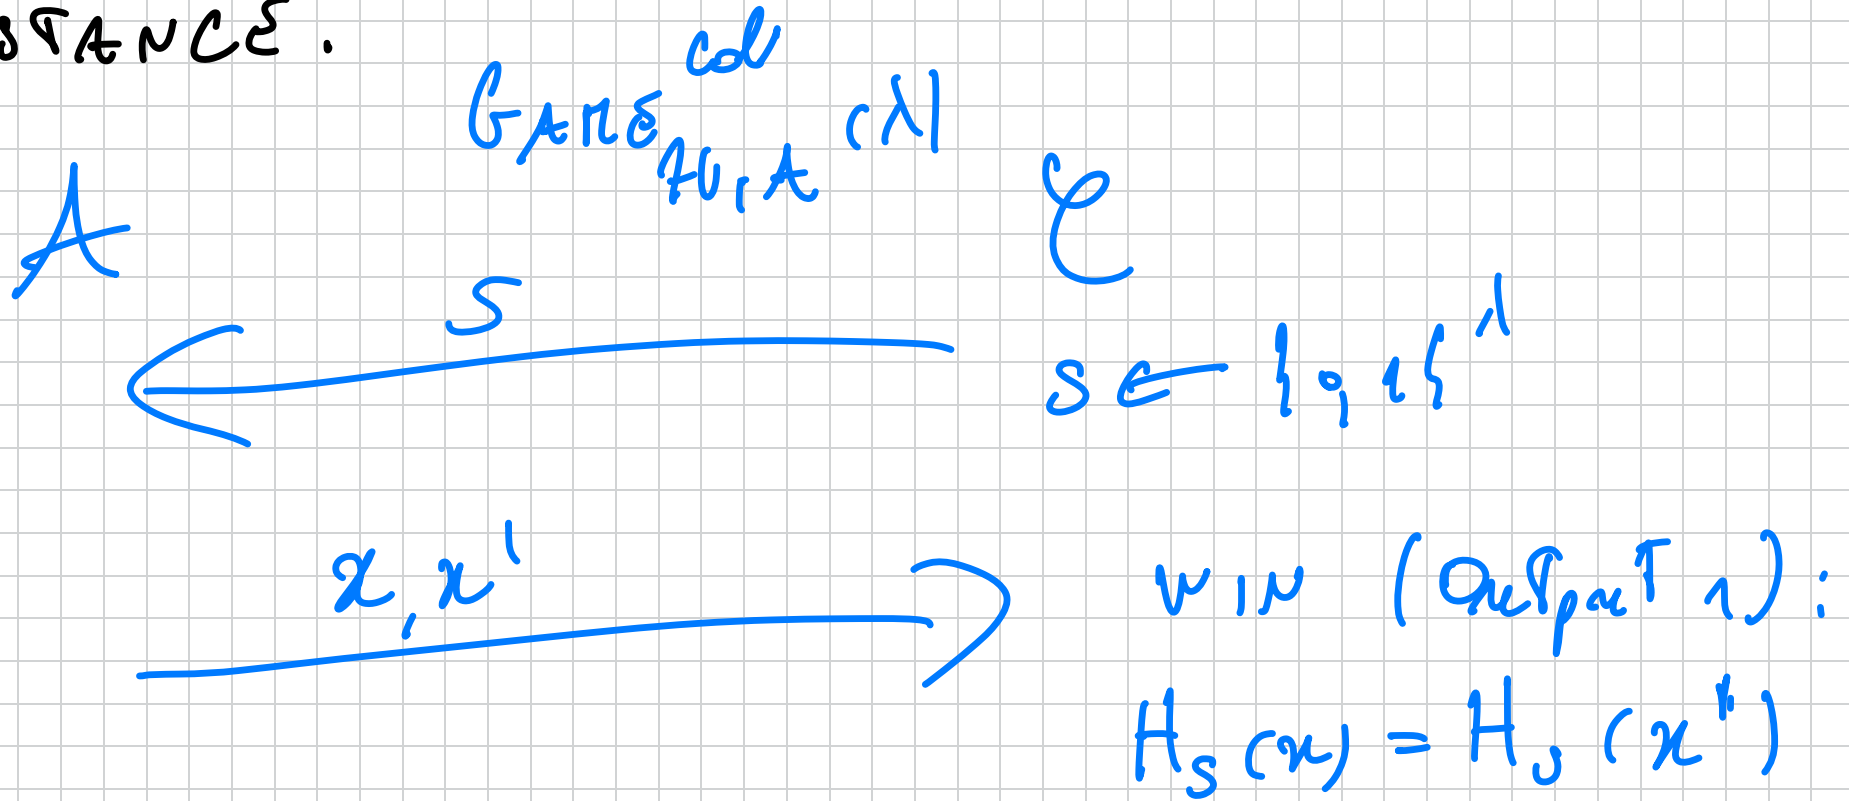 STANCE.
GAME^{col}_{H,A} (λ)
A C
s
s ← {0,1}^λ
x, x'
WIN (OUTPUT 1):
H_s(x) = H_s(x')